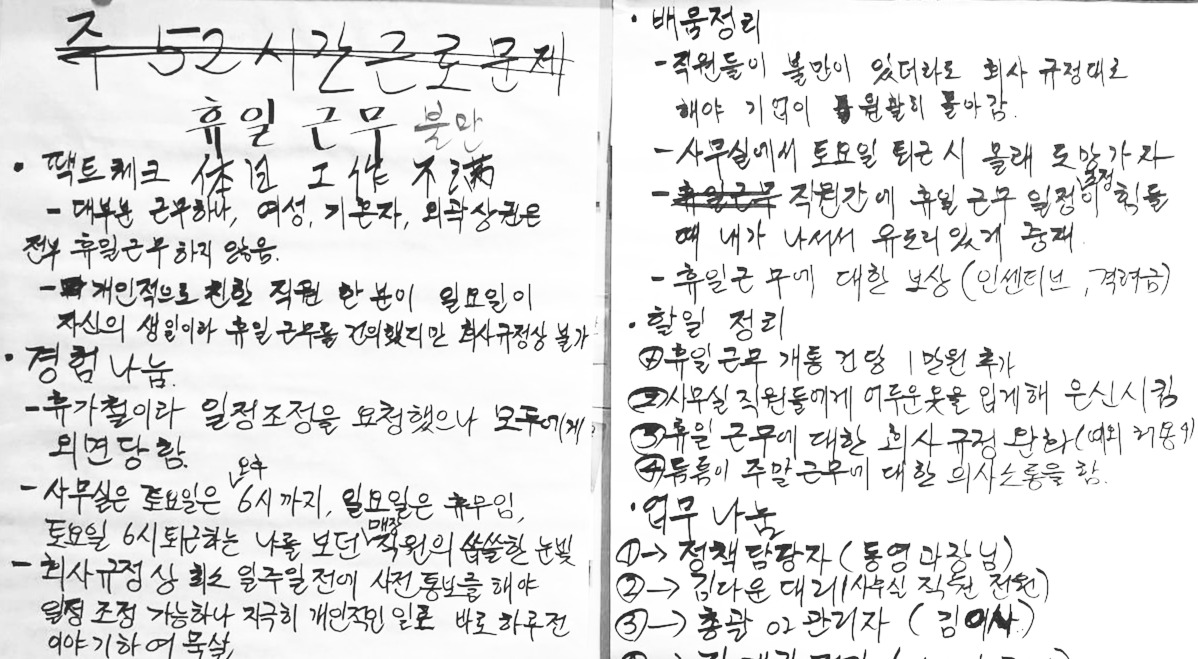 주 52시간근로문제
휴일 근무 불만
• 팩트체크 休日 工作 不满
- 대부분 근무하나, 여성, 기혼자, 외곽상권은
전부 휴일근무하지 않음.
- 개인적으로 친한 직원 한분이 일요일이
자신의 생일이라 휴일근무를 건의했지만 회사규정상 불가
• 경험나눔.
- 휴가철이라 일정조정을 요청했으나 모두에게
외면당함.
- 사무실은 토요일은 오후 6시까지, 일요일은 휴무임,
토요일 6시퇴근하는 나를 보던 매장직원의 씁쓸한 눈빛
- 회사규정상 최소 일주일전에 사전통보를 해야
일정 조정 가능하나 지극히 개인적인 일로 바로 하루전
이야기하여 묵살.
• 배움정리
- 직원들이 불만이 있더라도 회사 규정대로
해야 기업이 원활히 돌아감.
- 사무실에서 토요일 퇴근시 몰래 도망가자
- 휴일근무 직원간에 휴일 근무 일정이 조정 힘들
때 내가 나서서 유도리있게 중재
- 휴일근무에 대한 보상 (인센티브, 격려금)
• 할일 정리
① 휴일 근무 개통 건당 1만원 추가
② 사무실 직원들에게 어두운옷을 입게해 은신시킴
③ 휴일 근무에 대한 회사 규정 완화
④ 틈틈이 주말근무에 대한 의사소통을 함.
• 업무 나눔
① → 정책담당자 (동영과장님)
② → 김다운 대리 (사무실 직원 전원)
③ → 총괄 02 관리자 (김이사.)